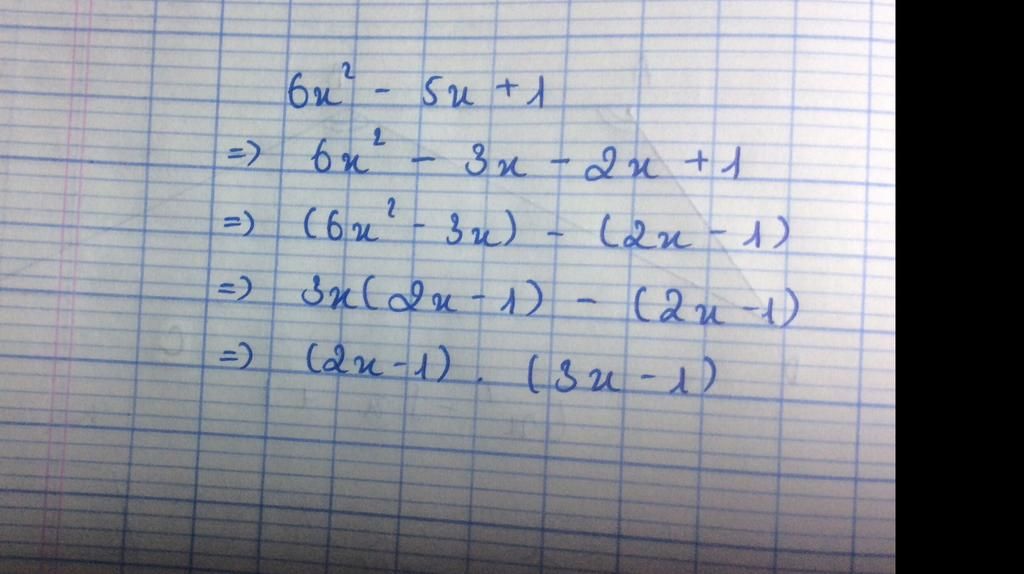 6x² - 5x + 1
=> 6x² - 3x - 2x + 1
=> (6x² - 3x) - (2x - 1)
=> 3x(2x - 1) - (2x - 1)
=> (2x - 1) . (3x - 1)